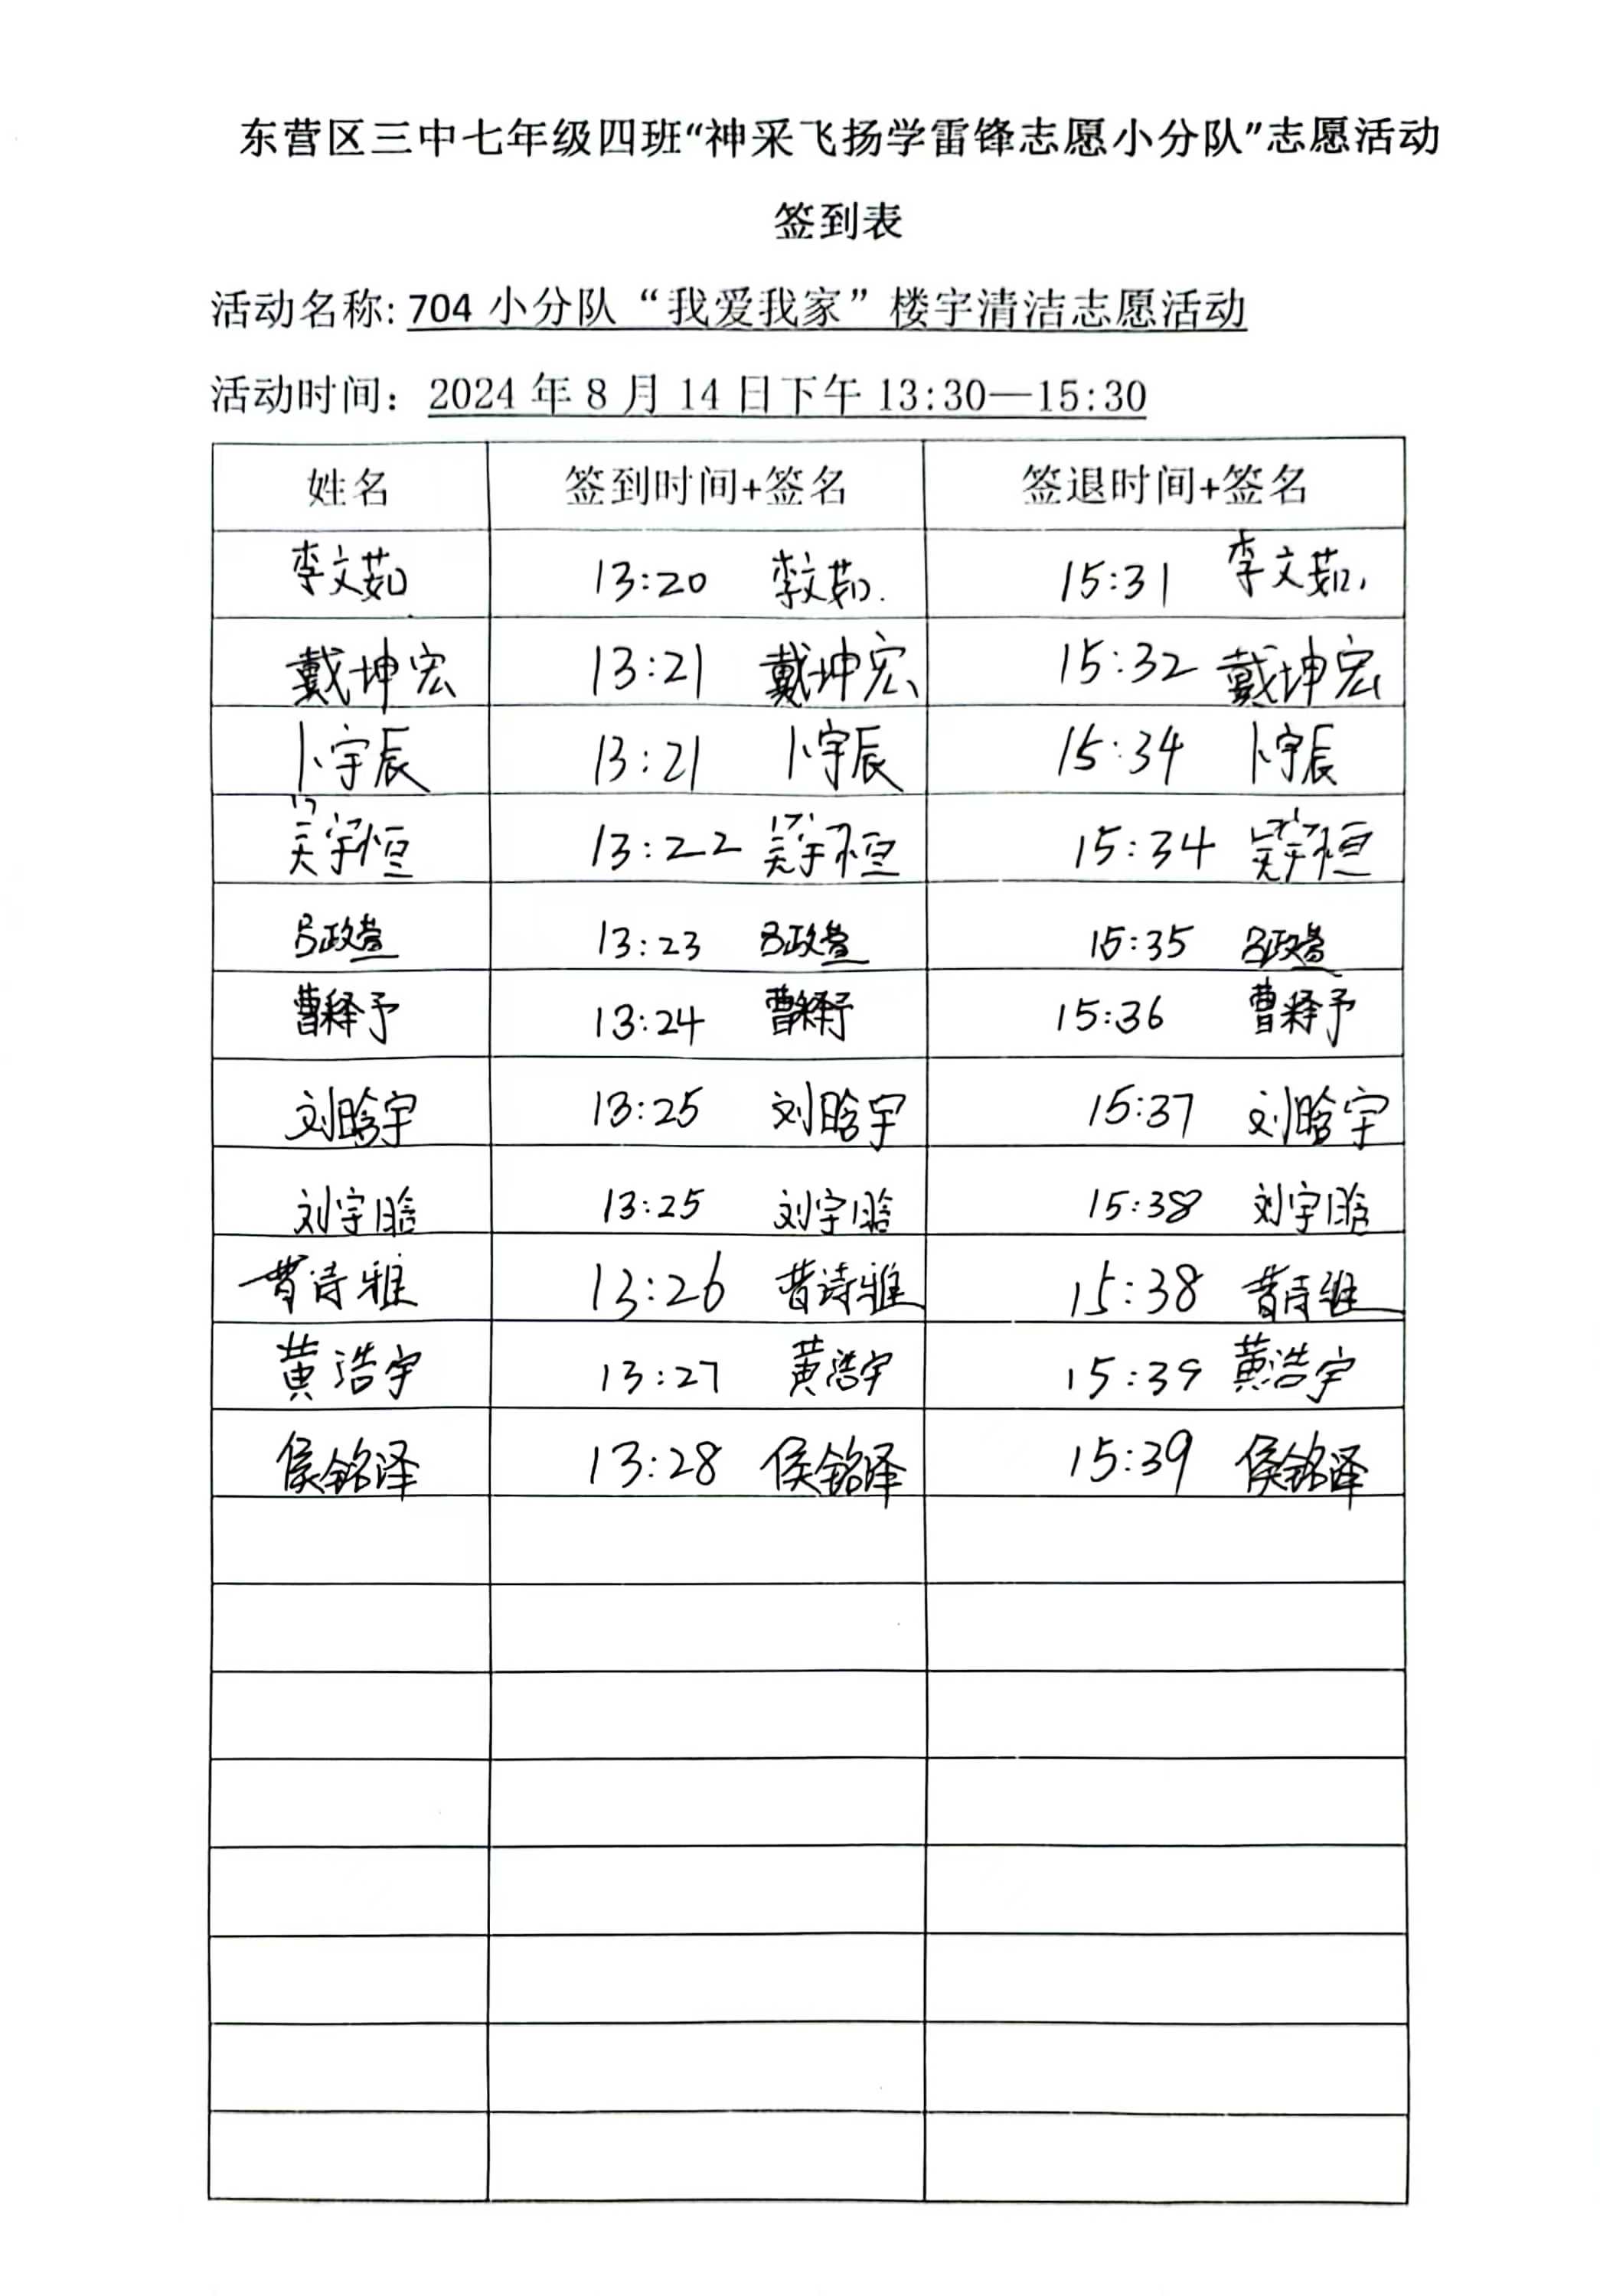 东营区三中七年级四班“神采飞扬学雷锋志愿小分队”志愿活动
签到表
活动名称: 704 小分队 “我爱我家” 楼宇清洁志愿活动
活动时间: 2024 年 8 月 14 日下午 13:30—15:30
姓名 签到时间+签名 签退时间+签名
李文茹 13:20 李文茹. 15:31 李文茹.
戴坤宏 13:21 戴坤宏 15:32 戴坤宏
卜宇辰 13:21 卜宇辰 15:34 卜宇辰
吴宇恒 13:22 吴宇恒 15:34 吴宇恒
吕政萱 13:23 吕政萱 15:35 吕政萱
曹释予 13:24 曹释予 15:36 曹释予
刘晗宇 13:25 刘晗宇 15:37 刘晗宇
刘宇晗 13:25 刘宇晗 15:38 刘宇晗
诗雅 13:26 诗雅 15:38 诗雅
黄浩宇 13:27 黄浩宇 15:39 黄浩宇
侯铭泽 13:28 侯铭泽 15:39 侯铭泽